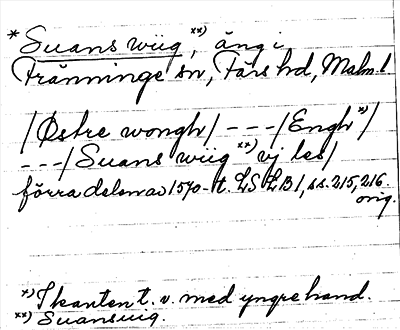 * Suans wiig, xx) äng i
Tränninge sn, Färs hd, Malm. l
/Østre wongh/ - - - /Engh x)/
- - -/Suans wiig xx) vj les/
förra delen av 1570-t. LS LB 1, ss. 215, 216
orig.
x) I kanten t. v. med yngre hand.
xx) Suansuiig.